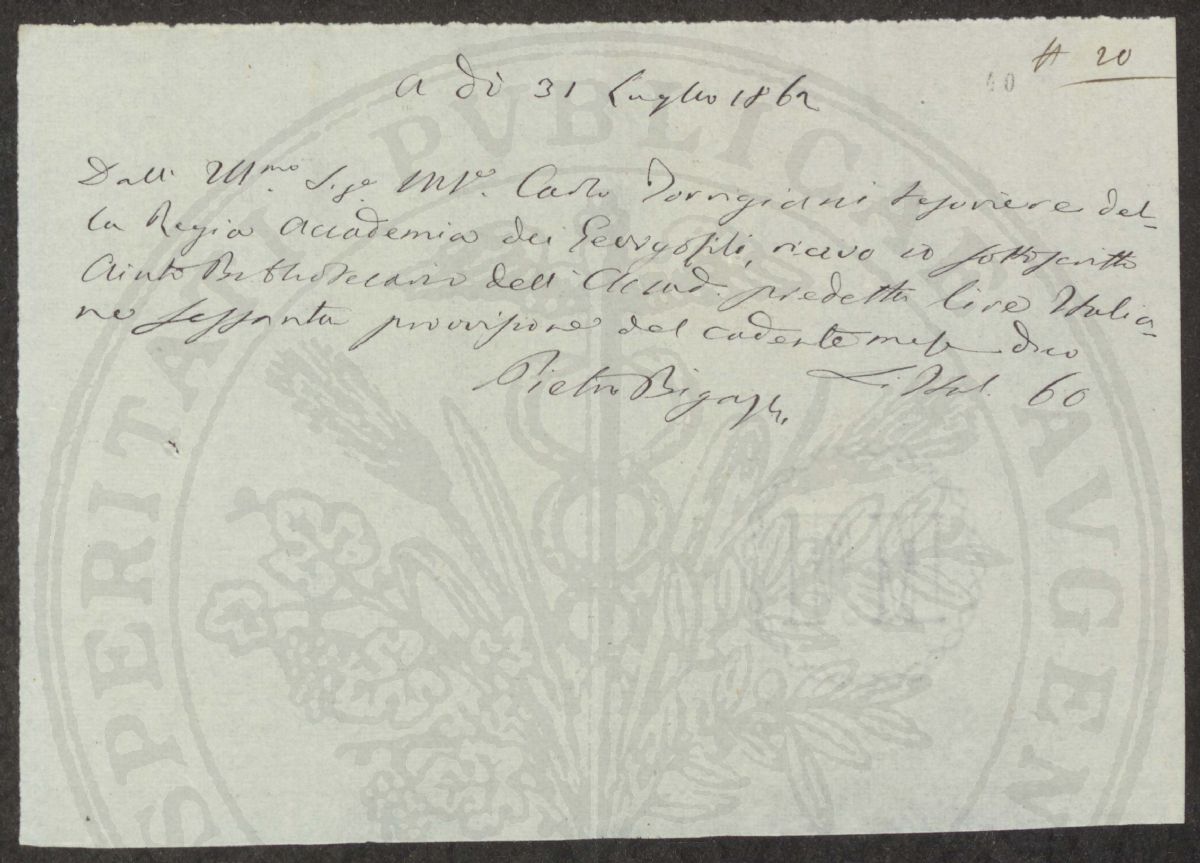 # 20
40
A dì 31 Luglio 1862
Dall' Illmo. Sige. Mse. Carlo Torrigiani Tesoriere del-
la Regia Accademia dei Georgofili, ricevo io sottoscritto
Aiuto Bibliotecario dell' Accad. predetta lire Italia-
ne sessanta provvisione del cadente mese dico
Li. Ital. 60
Pietro Bigazzi
PROSPERITATI PVBLICAE AVGEN